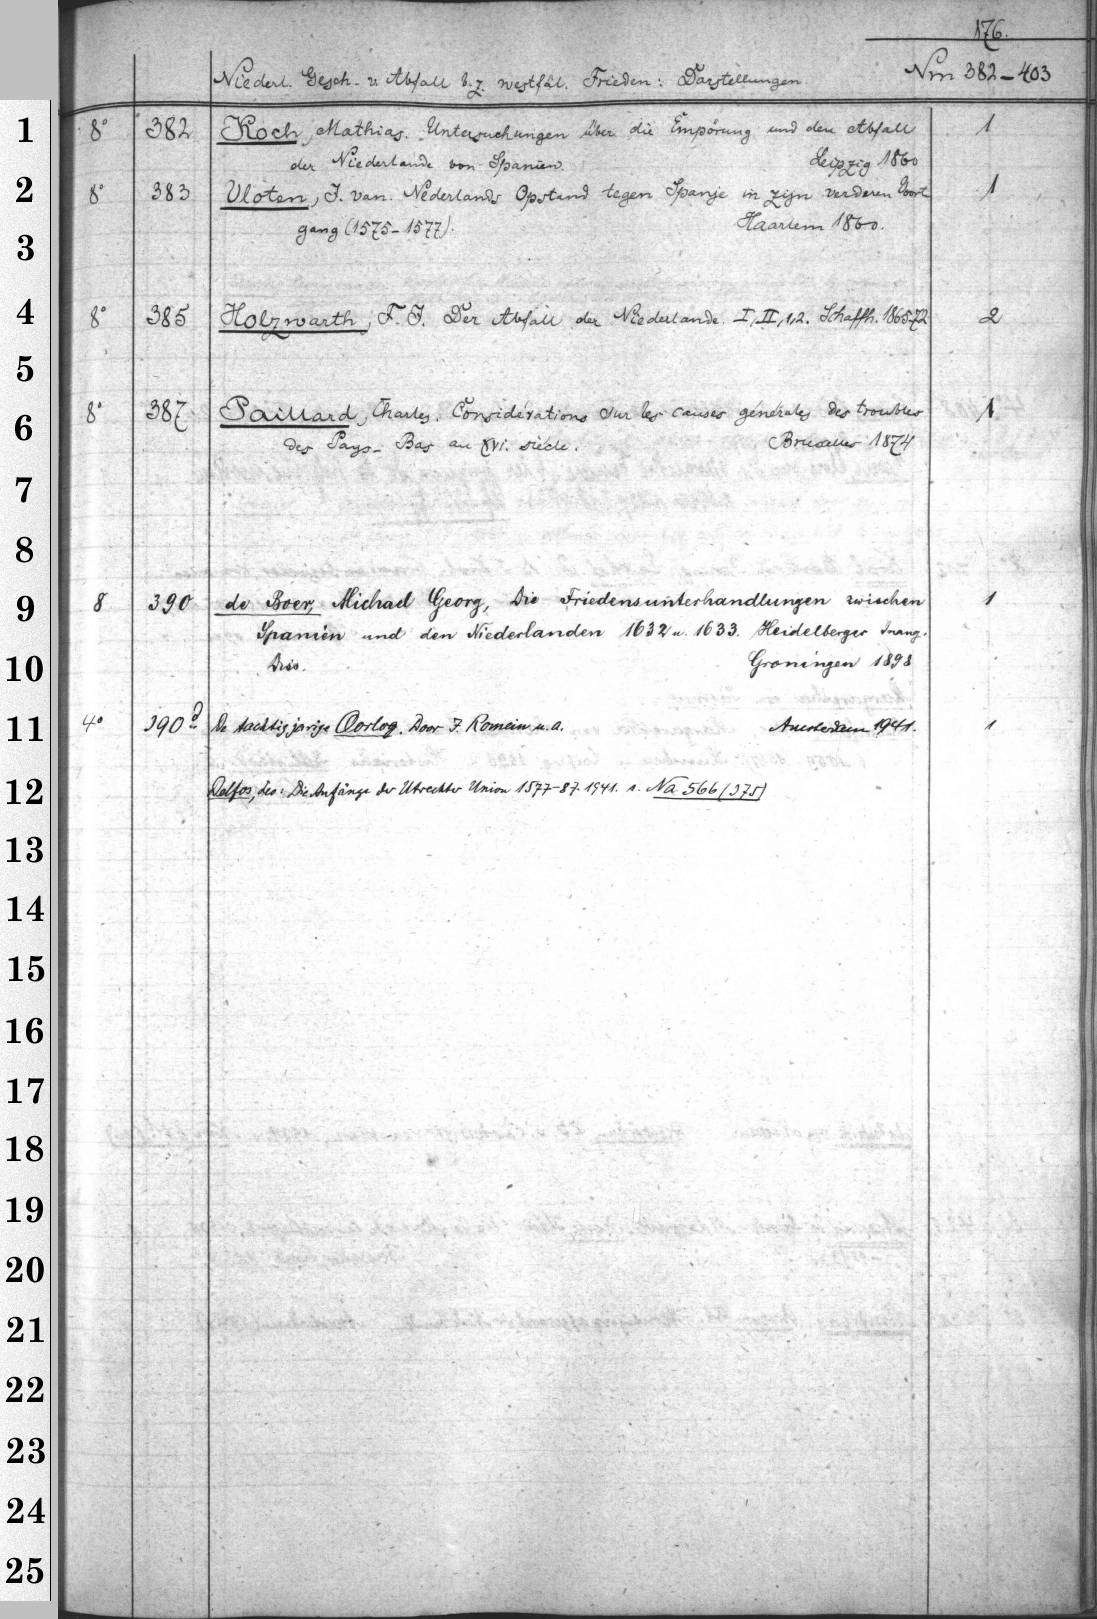 176.
Niederl. Gesch. v. Abfall b. z. westfäl. Frieden: Darstellungen. Nm 382-403
1 8° 382 Koch, Mathias. Untersuchungen über die Empörung und den Abfall 1
der Niederlande von Spanien. Leipzig 1860
2 8° 383 Vloten, J. van. Nederlands Opstand tegen Spanje in zijn verderen Voort 1
gang (1575-1577). Haarlem 1860.
3
4 8° 385 Holzwarth, F. J. Der Abfall der Niederlande. I, II,1,2. Schaffh. 1865/72 2
5
6 8° 387 Paillard, Charles. Considérations sur les causes générales des troubles 1
des Pays-Bas au XVI. siècle. Bruxelles 1874
7
8
9 8 390 de Boer, Michael Georg, Die Friedensunterhandlungen zwischen 1
Spanien und den Niederlanden 1632 u. 1633. Heidelberger Inaug.
10 Diss. Groningen 1898
11 4° 390 De tachtigjarige Oorlog. Door J. Romein u. a. Amsterdam 1941. 1
12 Delfos, Leo: Die Anfänge der Utrechter Union 1577-87. 1941. s. Na 566 (375)
13
14
15
16
17
18
19
20
21
22
23
24
25